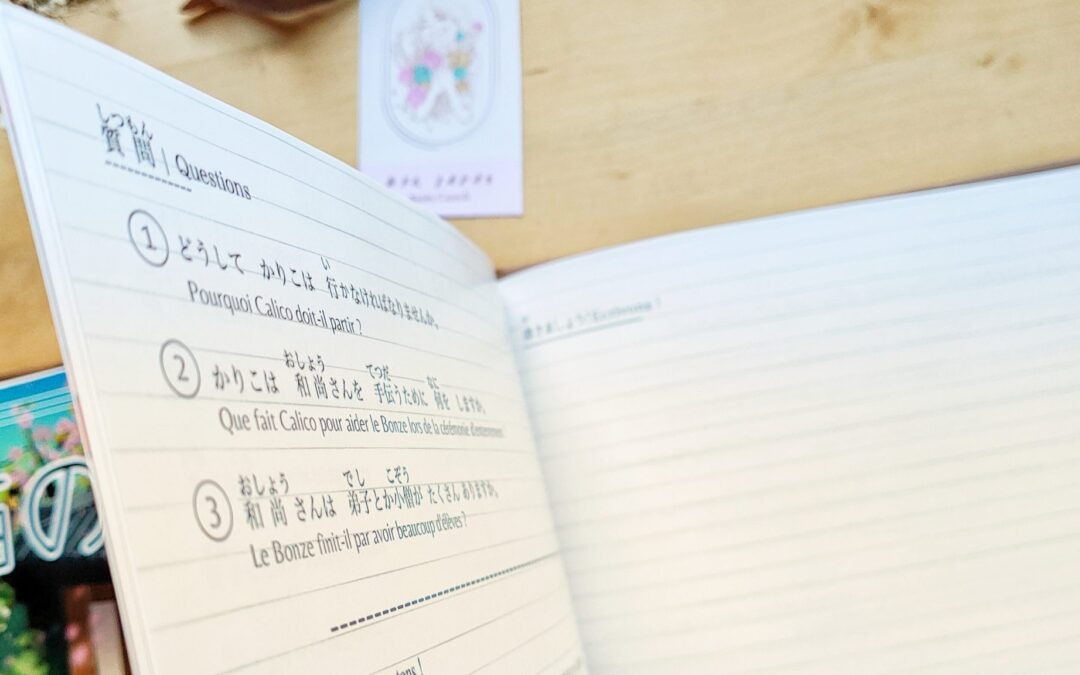 しつもん
質問 | Questions
い
① どうして かりこは 行かなければなりませんか。
Pourquoi Calico doit-il partir ?
おしょう てつだ なに
② かりこは 和尚さんを 手伝うために 何を しますか。
Que fait Calico pour aider le Bonze lors de la cérémonie d'enterrement
おしょう でし こぞう
③ 和尚 さんは 弟子とか小僧が たくさん ありますか。
Le Bonze finit-il par avoir beaucoup d'élèves ?
の